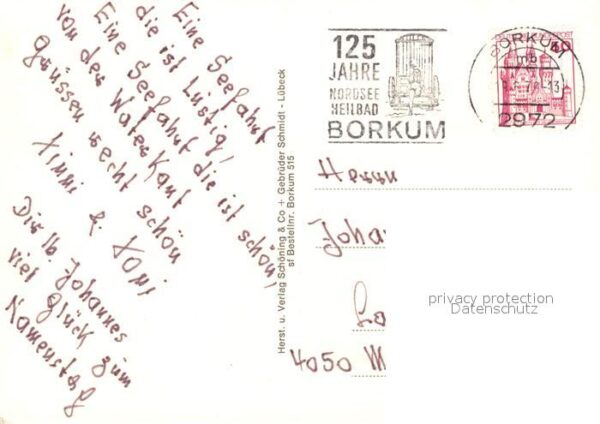 Eine Seefahrt
die ist lustig,
Eine Seefahrt die ist schön,
von der Waterkant
grüssen recht schön
& 
Dir lb. Johannes
viel Glück zum
Namenstag
Herst. u. Verlag Schöning & Co + Gebrüder Schmidt - Lübeck
sf Bestellnr. Borkum 515
125
JAHRE
NORDSEE
HEILBAD
BORKUM
BORKUM
mb
2972
Herrn
Joha
4050 M
privacy protection
Datenschutz